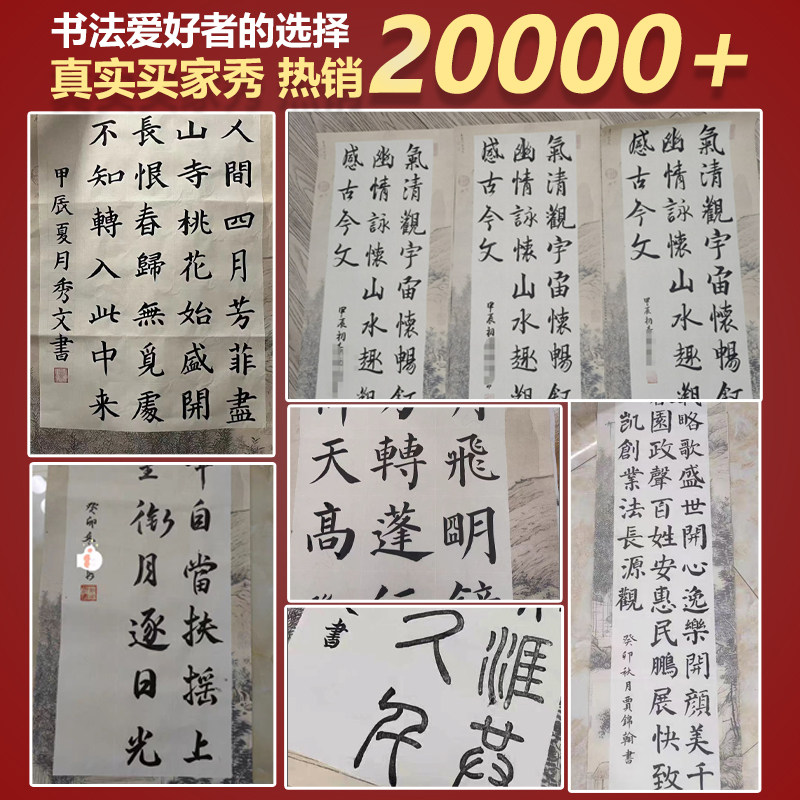 书法爱好者的选择
真实买家秀 热销 20000+
人間四月芳菲盡
山寺桃花始盛開
長恨春歸無覓處
不知轉入此中来
甲辰夏月秀文書
氣清觀宇宙懷暢
幽情詠懷山水趣
感古今文
甲辰初春
氣清觀宇宙懷暢
幽情詠懷山水趣
感古今文
甲辰初
氣清觀宇宙懷暢
幽情詠懷山水趣
感古今文
甲辰初春
自當扶摇上
銜月逐日光
癸卯
飛眀
轉蓬
天高
書
略歌盛世開心逸樂開顏美千
園政聲百姓安惠民鵬展快致
凱創業法長源觀
癸卯秋月賈錦翰書